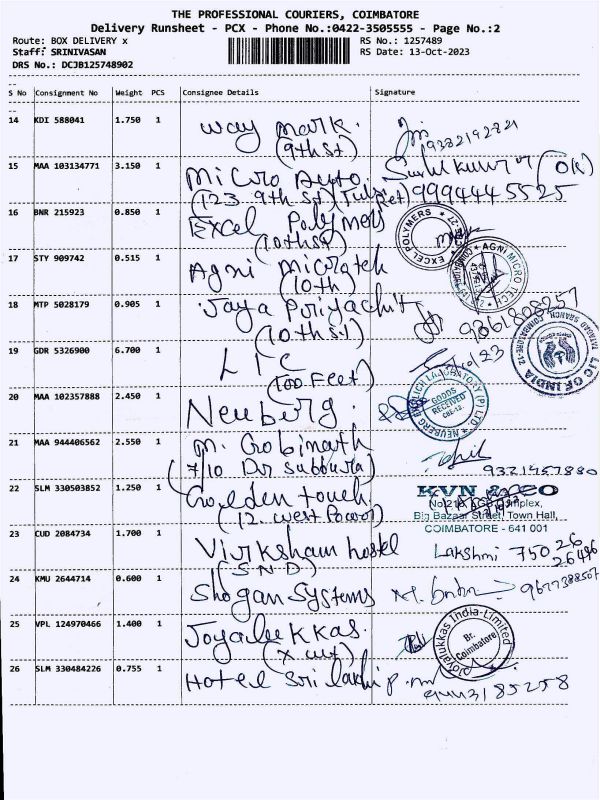 THE PROFESSIONAL COURIERS, COIMBATORE
Delivery Runsheet - PCX - Phone No.:0422-3505555 - Page No.:2
Route: BOX DELIVERY x RS No.: 1257489
Staff: SRINIVASAN RS Date: 13-Oct-2023
DRS No.: DCJB125748902
S No Consignment No Weight PCS Consignee Details Signature
14 KDI 588041 1.750 1 Way Mark.
(9th st)
15 MAA 103134771 3.150 1 Micro Auto.
(123 9th St) 9994445525
16 BNR 215923 0.850 1 Excel Polymers
(10th st)
EXCEL POLYMERS
17 STY 909742 0.515 1 Agni Microtek
(10th)
AGNI MICRO TECH
18 MTP 5028179 0.905 1 Jaya
(10th st)
19 GDR 5326900 6.700 1 LIC
(100 Feet)
LIC OF INDIA
20 MAA 102357888 2.450 1 Neuberg.
NEUBERG EHRLICH LABORATORY (P) LTD
GOODS
RECEIVED
CBE-12.
21 MAA 944406562 2.550 1 M. Gobinath
(7/10 Dr Subbura)
22 SLM 330503852 1.250 1 Golden touch
(12. West
KVN & CO
Complex,
Big Bazaar Street, Town Hall,
COIMBATORE - 641 001
23 CUD 2084734 1.700 1 Virksham hostel Lakshmi 75026
(SND) 26496
24 KMU 2644714 0.600 1 Shogan Systems
25 VPL 124970466 1.400 1 Joyalukkas.
(x cut)
Joyalukkas India Limited
Br.
Coimbatore
26 SLM 330484226 0.755 1 Hotel Sri